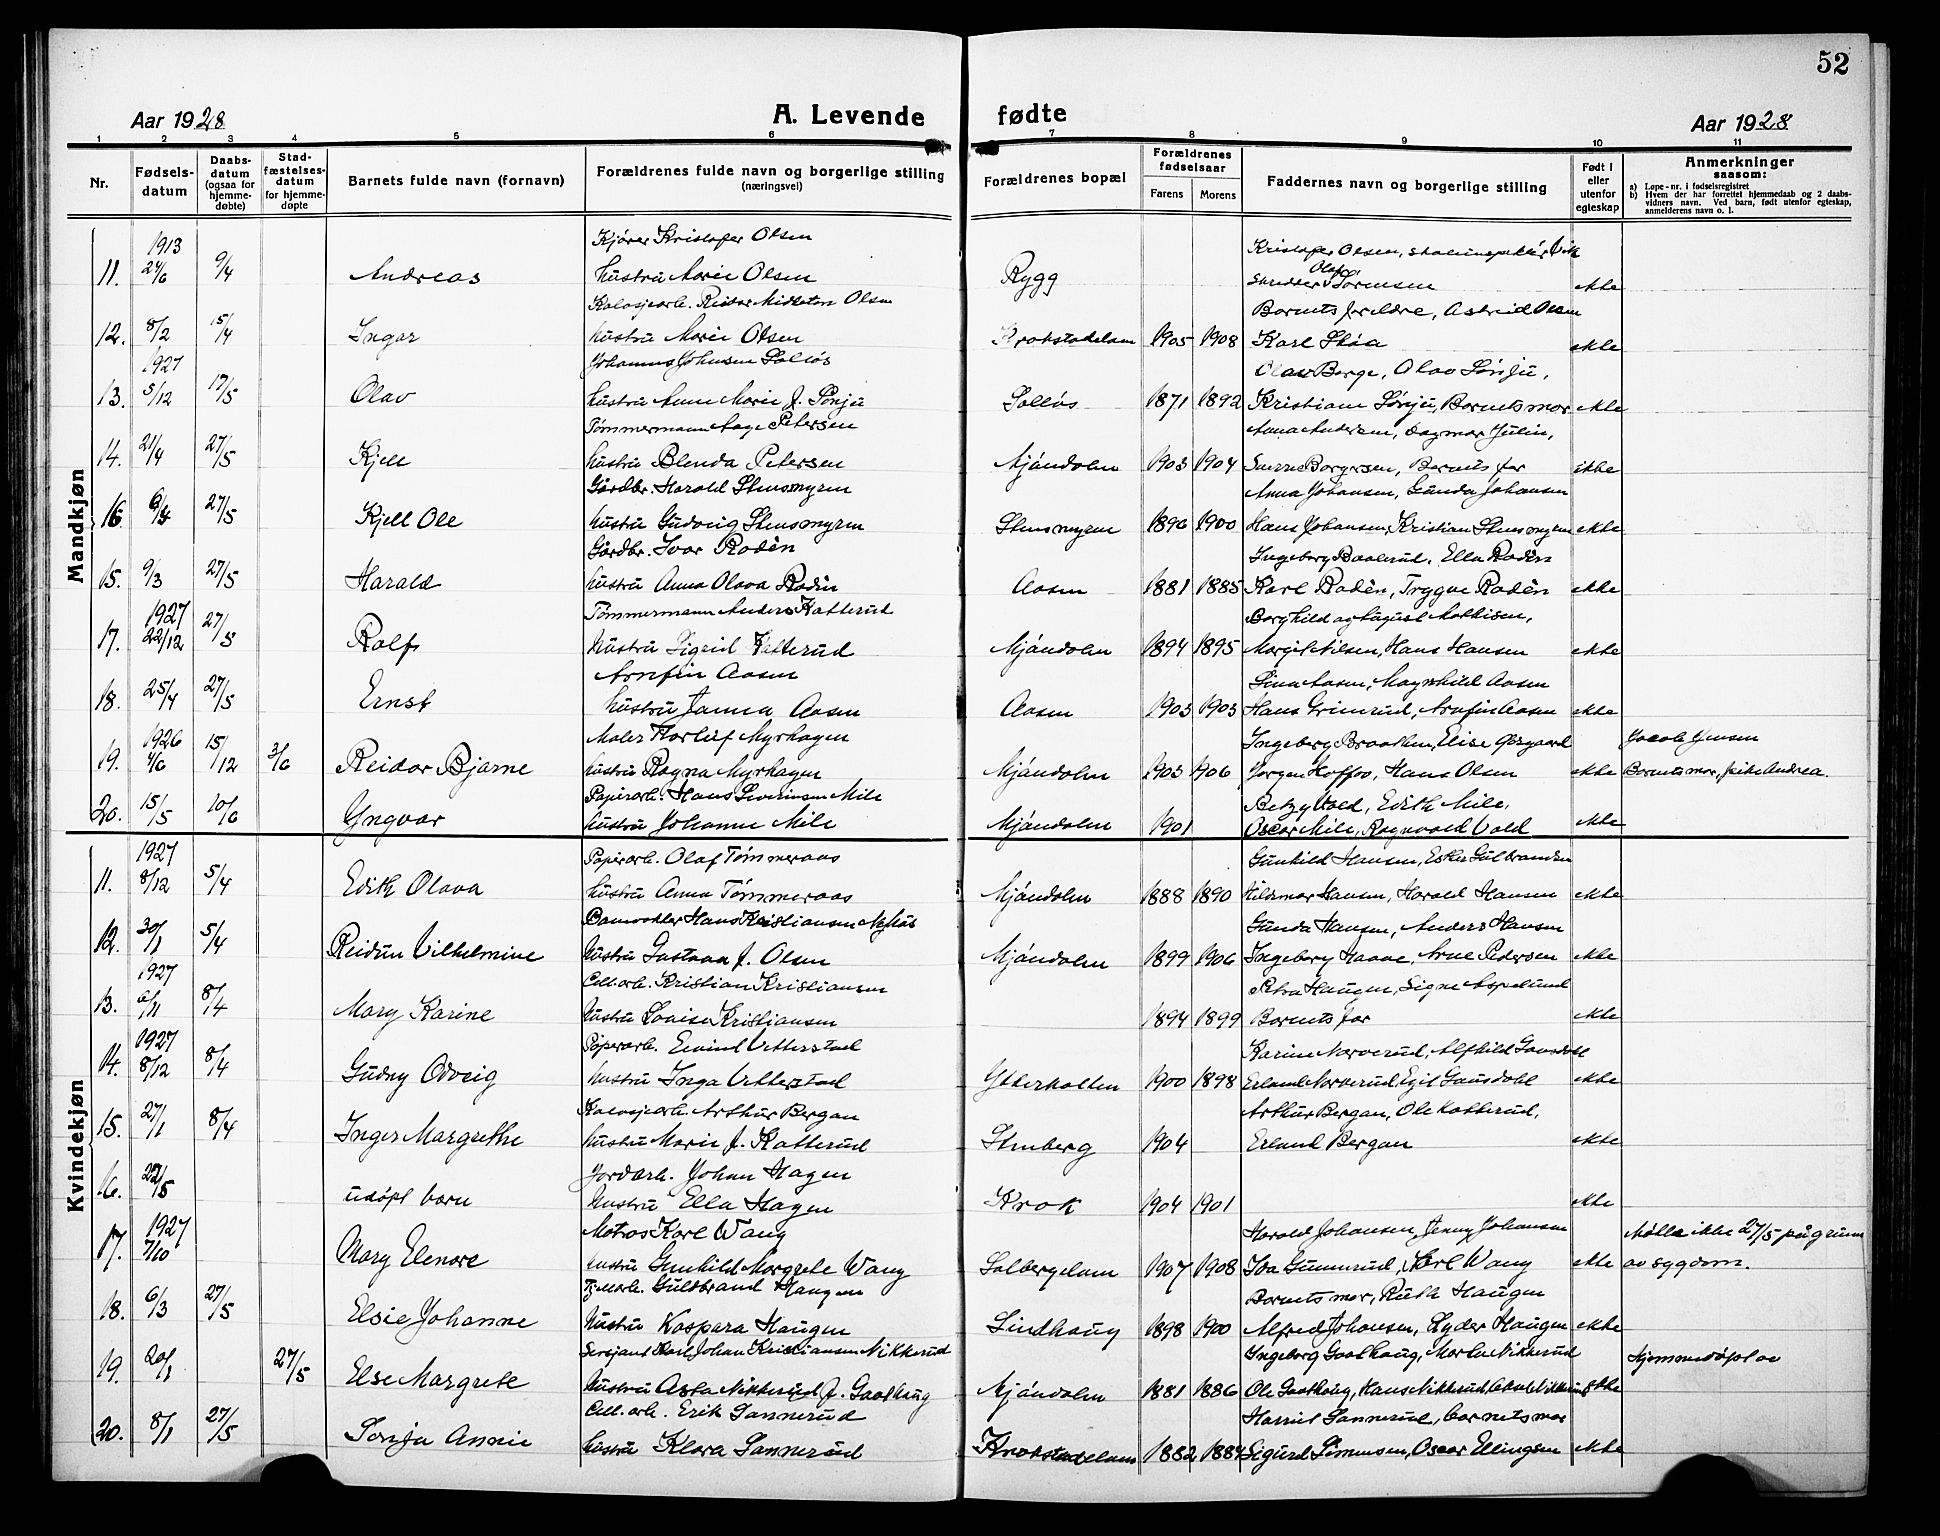 52
Aar 1928 A. Levende fødte Aar 1928
1 2 3 4 5 6 7 8 9 10 11
Nr. Fødsels-datum Daabs-datum (ogsaa for hjemme-døbte) Stad-fæstelses-datum for hjemme-døpte Barnets fulde navn (fornavn) Forældrenes fulde navn og borgerlige stilling (næringsvei) Forældrenes bopæl Forældrenes fødselsaar Farens Morens Faddernes navn og borgerlige stilling Født i eller utenfor egteskap Anmerkninger saasom:
a) Løpe-nr. i fødselsregistret
b) Hvem der har forrettet hjemmedaab og 2 daabs-vidners navn. Ved barn, født utenfor egteskap, anmelderens navn o. l.
Mandkjøn
1913 Kjører Kristofer Olsen Kristofer Olsen,
11. 24/6 9/4 Andreas hustru Marie Olsen Rygg Skrædder Olaf Sørensen ekte
Reidar Midleton Olsen Barnets forældre, Astrid Olsen
12. 8/2 15/4 Ingar hustru Marie Olsen Krokstadelven 1905 1908 Karl Støa ekte
1927 Johannes Johnsen Solløs Olav Berge, Olav Sønju,
13. 5/12 17/5 Olav hustru Anne Marie f. Sønju Solløs 1871 1892 Kristiane Sønju, Barnets mor ekte
Tømmermann Aage Petersen Anna Andersen, Dagmar Julin,
14. 21/4 27/5 Kjell hustru Blenda Petersen Mjøndalen 1903 1904 Sverre Borgersen, Barnets far ekte
Gårdbr. Harald Stensmyren Anna Johansen, Gunda Johansen
16 27/5 Kjell Ole hustru Gudveig Stensmyren Stensmyren 1896 1900 Hans Johansen, Kristian Stensmyren ekte
Gårdbr. Ivar Rodén Ingeborg Baalerud, Ella Rodén
15. 9/3 27/5 Harald hustru Anna Olava Rodén Aasen 1881 1885 Karl Rodén, Tryggve Rodén ekte
1927 Tømmermann Anders Katterud Borghild og August Mathisen,
17. 22/12 27/5 Rolf hustru Sigrid Katterud Mjøndalen 1894 1895 Margit Nilsen, Hans Hansen ekte
Arnfin Aasen Lina Aasen, Magnhild Aasen
18. 25/4 27/5 Ernst hustru Janna Aasen Aasen 1903 1903 Hans Grimrud, Arnfin Aasen ekte
1926 Maler Thorleif Myrhagen Ingeborg Braathen, Elise Jacob Jensen
19. 4/6 15/12 3/6 Reidar Bjarne hustru Ragna Myrhagen Mjøndalen 1903 1906 Jørgen Hoffo, Hans Olsen ekte Barnets mor, Andrea.
Papirarb. Hans Severinsen Mile Betzy Vold, Edith Mile,
20. 15/5 10/6 Yngvar hustru Johanne Mile Mjøndalen 1901 Oscar Mile, Ragnvald Vold ekte
Kvindekjøn
1927 Papirarb. Olaf Tømmeraas Gunhild Hansen, Esther Gulbrandsen
11. 8/12 5/4 Edith Olava hustru Anna Tømmeraas Mjøndalen 1888 1890 Hildemar Hansen, Harald Hansen ekte
Banevokter Hans Kristiansen Gunda Hansen, Anders Hansen
12. 30/1 5/4 Reidun Vilhelmine hustru Gustava f. Olsen Mjøndalen 1899 1906 Ingeborg Haave, Arne Pedersen ekte
1927 Cell.arb. Kristian Kristiansen Petra Haugen, Signe Aspelund
13. 6/11 8/4 Mary Karine hustru Lovise Kristiansen 1894 1899 Barnets far ekte
1927 Papirarb. Eivind Vetterstad Karine Norverud, Alfhild Gausdal
14. 8/12 8/4 Gudny Odveig hustru Inga Vetterstad Ytterkollen 1900 1898 Erland Norverud, Egil Gausdahl ekte
Kalosjearb. Arthur Bergan Arthur Bergan, Ole Katterud,
15. 27/1 8/4 Inger Margrethe hustru Marie f. Katterud Stenberg 1904 Erland Bergan ekte
Jordarb. Johan Hagen
16. udøpt barn hustru Ella Hagen Krok 1904 1901 ekte
1927 Matros Karl Wang Harald Johansen, Jenny Johansen Møtte ikke 27/5 på grunn
17. 7/10 Mary Elenore hustru Gunhild Margrete Wang Solbergelven 1907 1908 Ida Gunnerud, Karl Wang ekte av sygdom.
Guldbrand Haugen Barnets mor, Ruth Haugen
18. 6/3 27/5 Elsie Johanne hustru Kaspara Haugen Lindhaug 1898 1900 Alfred Johansen, Ryder Haugen ekte
Sersjant Karl Johan Kristiansen Nikkerud Ingeborg Gaathaug, Marta Nikkerud Hjemmedøpt av
19. 20/1 27/5 Else Margrete hustru Asta Nikkerud f. Gaathaug Mjøndalen 1881 1886 Ole Gaathaug, Hans Nikkerud, ekte
Cell.arb. Erik Sannerud Harriet Sannerud, barnets mor
20. 8/1 27/5 Sonja Annie hustru Klara Sannerud Krokstadelven 1882 1884 Sigurd Simensen, Oscar Ellingsen ekte